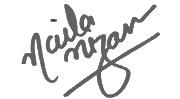 Naila
Nizam